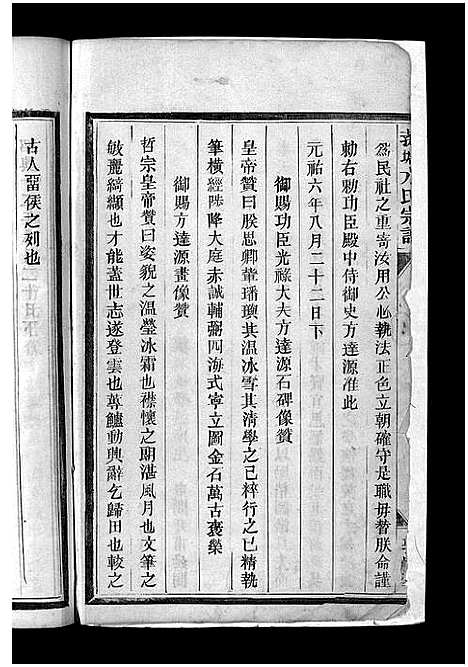 為民社之重寄汝用公心執法正色立朝確守是職毋替朕命謹
勅右勅功臣殿中侍御史方達源准此
元祐六年八月二十二日下
御賜功臣光祿大夫方達源石碑像贊
皇帝贊曰朕思卿輩璠璵其溫冰雪其清學之已粹行之已精執
筆橫經陞降大庭赤誠輔弼四海式寧立圖金石萬古褒榮
御賜方達源畫像贊
哲宗皇帝贊曰姿貌之溫瑩冰霜也襟懷之朗湛風月也文筆之
敏麗綺纈也才能蓋世志遂登雲也蓴鱸動興辭乞歸田也較之
古人畱侯之列也
方氏宗譜